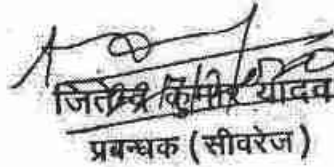 जितेन्द्र कुमार यादव
प्रबन्धक (सीवरेज)